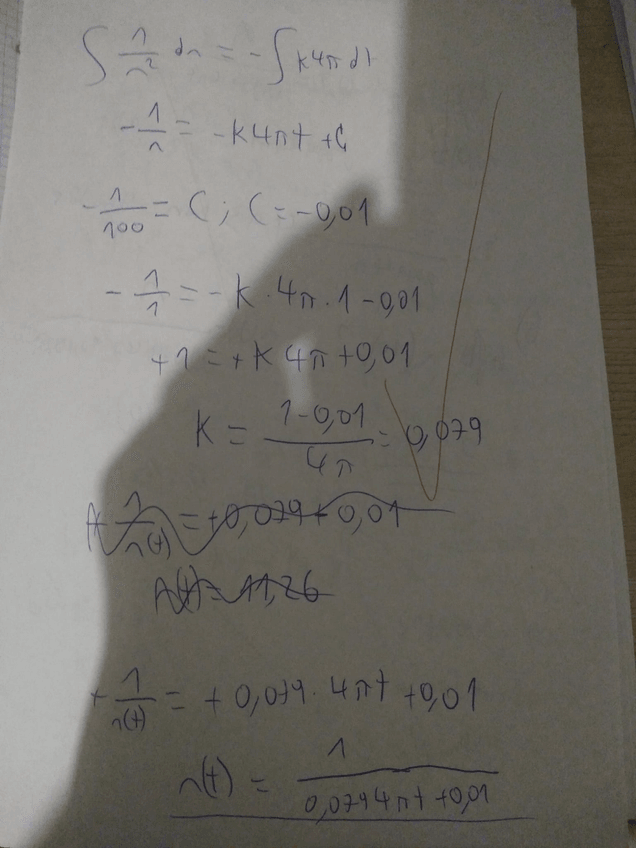 ∫ 1/n² dn = - ∫ k4π dt
- 1/n = - k4πt + C
- 1/100 = C ; C = -0,01
- 1/1 = - k · 4π · 1 - 0,01
+1 = + k 4π + 0,01
k = (1-0,01)/(4π) = 0,079
+ 1/n(t) = +0,079 + 0,01
n(t) = 11,26
+ 1/n(t) = + 0,079 · 4πt + 0,01
n(t) = 1/(0,079 4πt + 0,01)